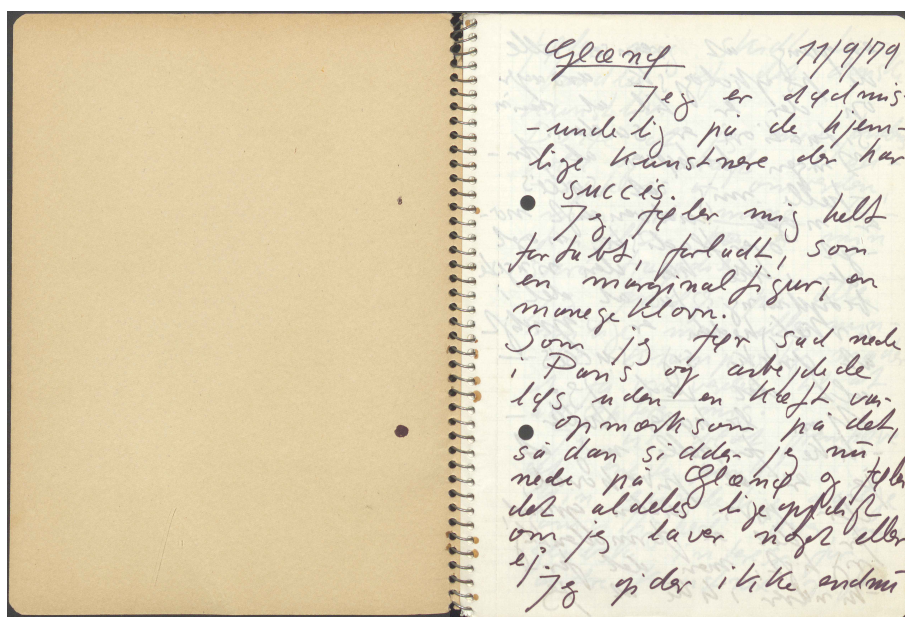 Glænø 11/9/79
Jeg er dødmis-
-undelig på de hjem-
lige kunstnere der har
succes.
Jeg føler mig helt
fortabt, forladt, som
en marginalfigur, en
manegeklovn.
Som jeg før sad nede
i Paris og arbejdede
løs uden en kæft var
opmærksom på det,
sådan sidder jeg nu
nede på Glænø og føler
det aldeles ligegyldigt
om jeg laver noget eller
ej.
Jeg gider ikke endnu